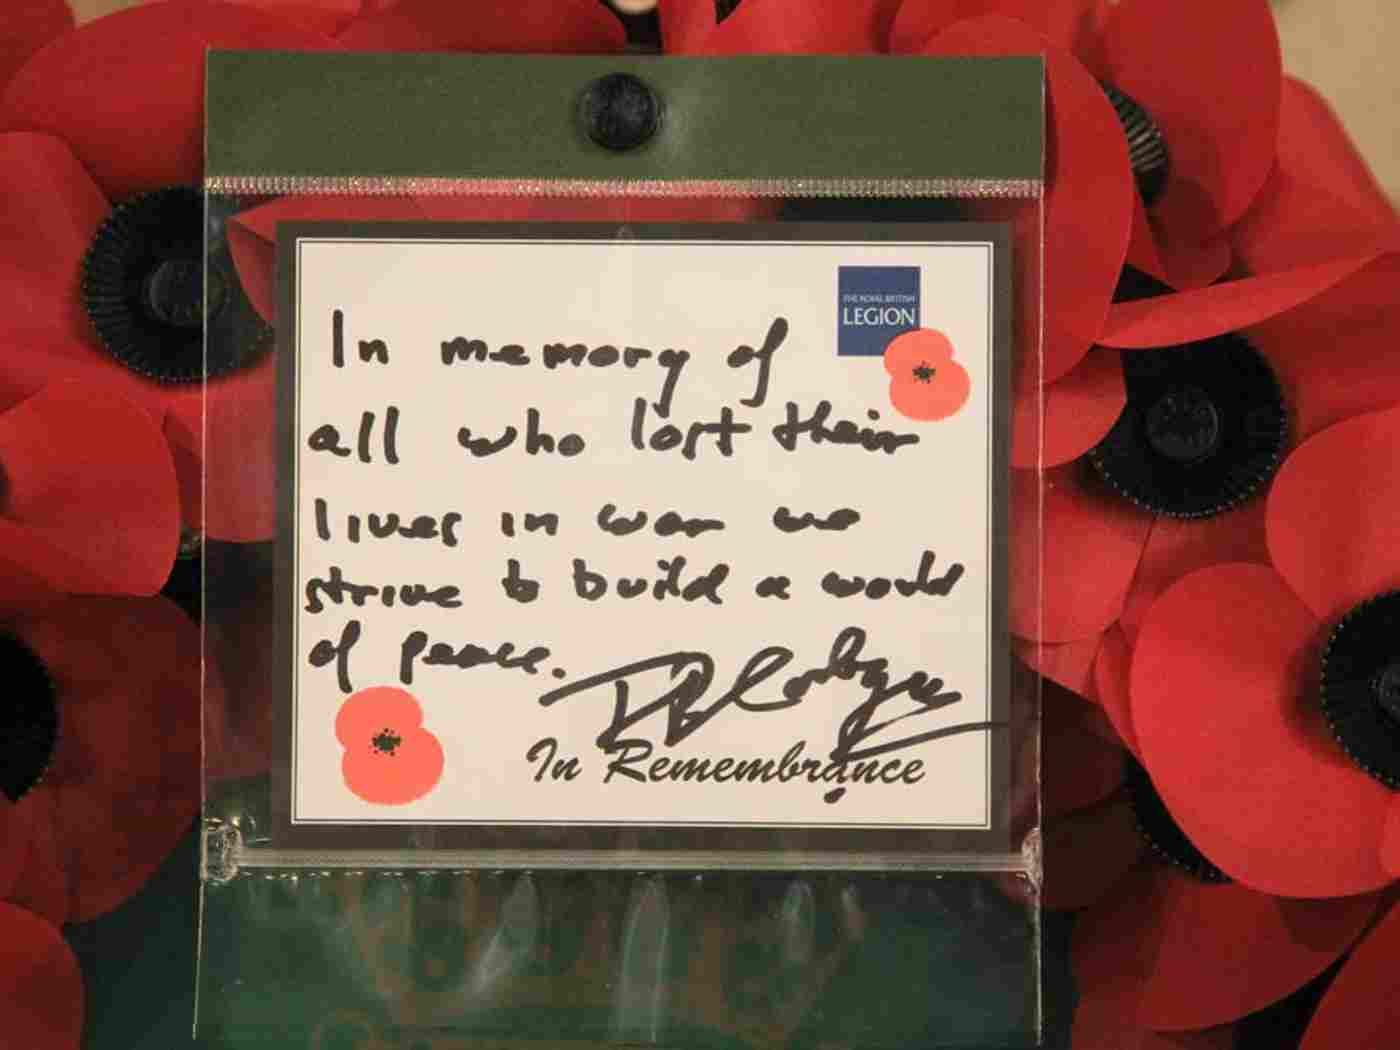 THE ROYAL BRITISH
LEGION
In memory of
all who lost their
lives in war we
strive to build a world
of peace.
J Corbyn
In Remembrance